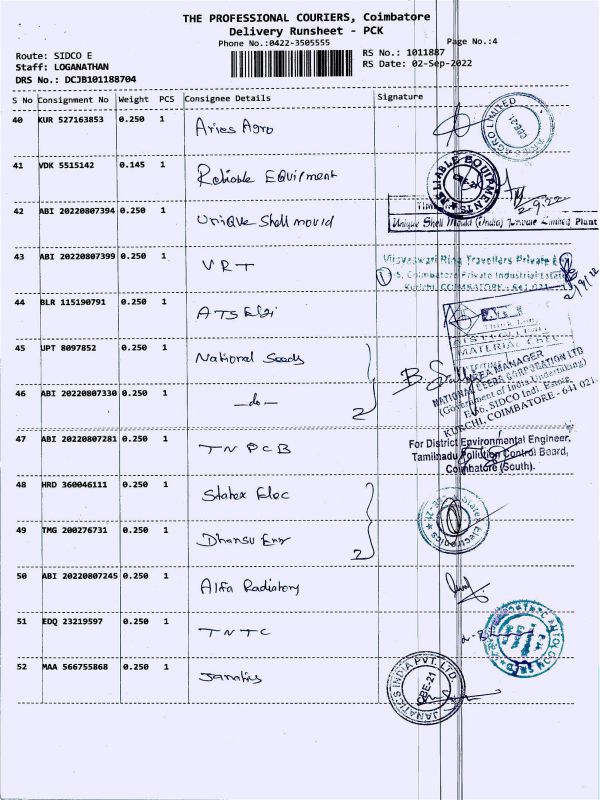 THE PROFESSIONAL COURIERS, Coimbatore
Delivery Runsheet - PCK
Phone No.:0422-3505555
Page No.:4
Route: SIDCO E
RS No.: 1011887
Staff: LOGANATHAN
RS Date: 02-Sep-2022
DRS No.: DCJB101188704
S No Consignment No Weight PCS Consignee Details Signature
40 KUR 527163853 0.250 1 Aries Agro
AGRO LIMITED
41 VDK 5515142 0.145 1 Reliable Equipment
RELIABLE EQUIPMENTS
2.9.22
42 ABI 20220807394 0.250 1 Unique Shell mould
Unique Shell Mould (India) Private Limited Plant
43 ABI 20220807399 0.250 1 V R T
Visveswari Ring Travellers Private
Coimbatore Private Industrial Estate
Kurichi, COIMBATORE - 641 021
44 BLR 115190791 0.250 1 ATS Elgi
MATERIAL
45 UPT 8097852 0.250 1 National Seeds
AREA MANAGER
NATIONAL SEEDS CORPORATION LTD
(Government of India Undertaking)
E-56, SIDCO Indl. Estate,
KURCHI, COIMBATORE - 641 021.
46 ABI 20220807330 0.250 1 -do- 2
47 ABI 20220807281 0.250 1 TNPCB
For District Environmental Engineer,
Tamilnadu Pollution Control Board,
Coimbatore (South).
48 HRD 360046111 0.250 1 Statex Elec
Statex Electronics
49 TMG 200276731 0.250 1 Dhansu Engg 2
50 ABI 20220807245 0.250 1 Alfa Radiatory
51 EDQ 23219597 0.250 1 TNTC
52 MAA 566755868 0.250 1 Janatics
JANATICS INDIA PVT. LTD.
CBE-21